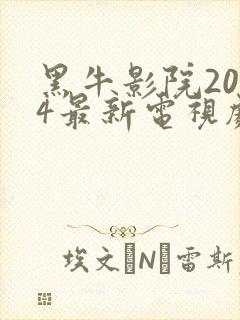 黑牛影院20
4最新電視
埃文·N·雷斯